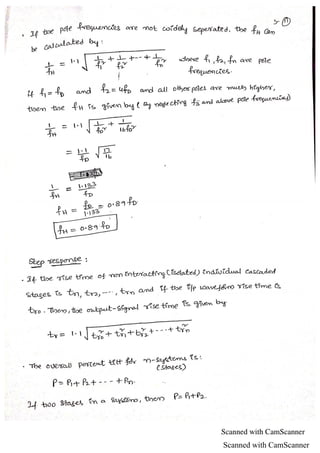 5- 11
. If the pole frequencies are not widely seperated, the fH can
be calculated by:
1/fH = 1.1 √(1/f1² + 1/f2² + --- + 1/fn²) where f1, f2, fn are pole
frequencies.
If f1 = fD and f2 = 4fD and all other poles are much higher,
then the fH is given by (By neglecting f3 and above pole frequencies)
1/fH = 1.1 √(1/fD² + 1/16fD²)
= 1.1/fD √(17/16)
1/fH = 1.133/fD
fH = fD/1.133 = 0.89 fD
fH = 0.89 fD
Step response :
. If the rise time of non interacting (Isolated) individual cascaded
stages is tr1, tr2, ---, trn and if the i/p waveform rise time is
tro. Then, the output-signal rise time is given by
tr = 1.1 √(tro² + tr1² + tr2² + --- + trn²)
. The overall percent tilt for n-systems is:
(stages)
P = P1 + P2 + --- + Pn.
If two stages in a system, then P = P1+P2.
Scanned with CamScanner
Scanned with CamScanner